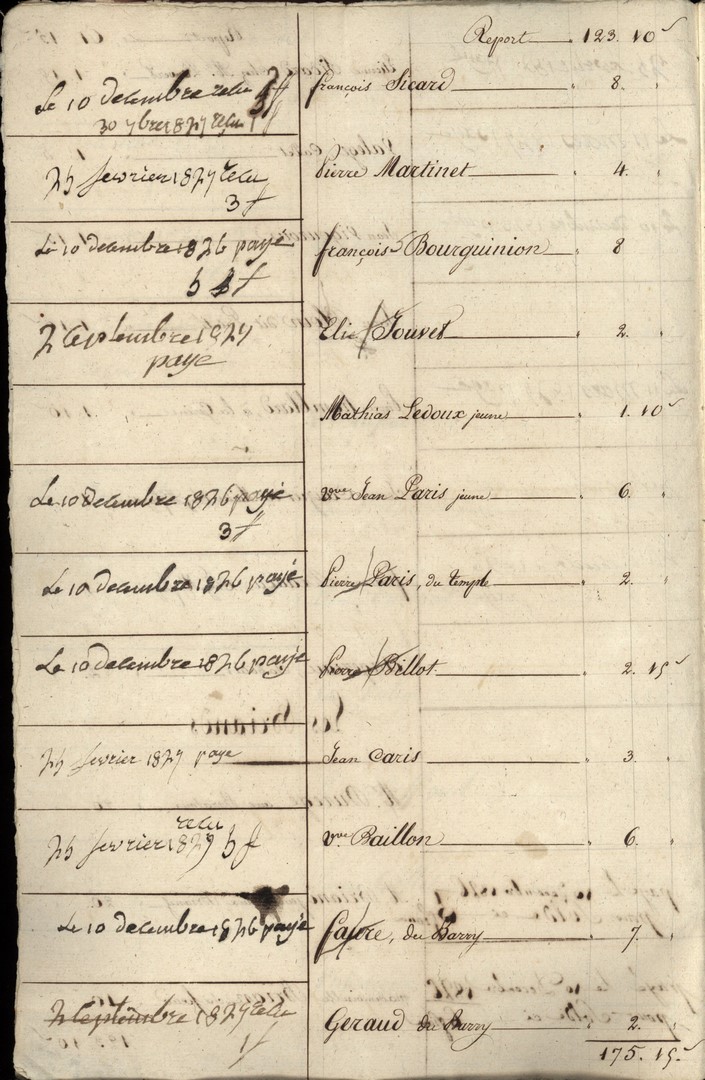 Report 123. 10s
Le 10 decembre recu 3ff françois Sicard 8.
30 7bre 1827 reçu 1f
25 fevrier 1827 recu Pierre Martinet 4.
3f
Le 10 decembre 1826 payé françois Bourguinion 8
5 f
2 Septembre 1827 Elie Jouvet 2.
paye
Mathias Ledoux jeune 1. 10s
Le 10 decembre 1826 payé vve Jean Paris jeune 6.
3f
Le 10 decembre 1826 payé Pierre Paris, du temple 2.
Le 10 decembre 1826 payé Pierre Billot 2. 15s
25 fevrier 1827 paye Jean Caris 3.
recu
25 fevrier 1827 5f vve Baillon 6.
Le 10 decembre 1826 payé faure, du Barry 7.
2 Septembre 1827 recu Geraud du Barry 2.
1f
175. 15s